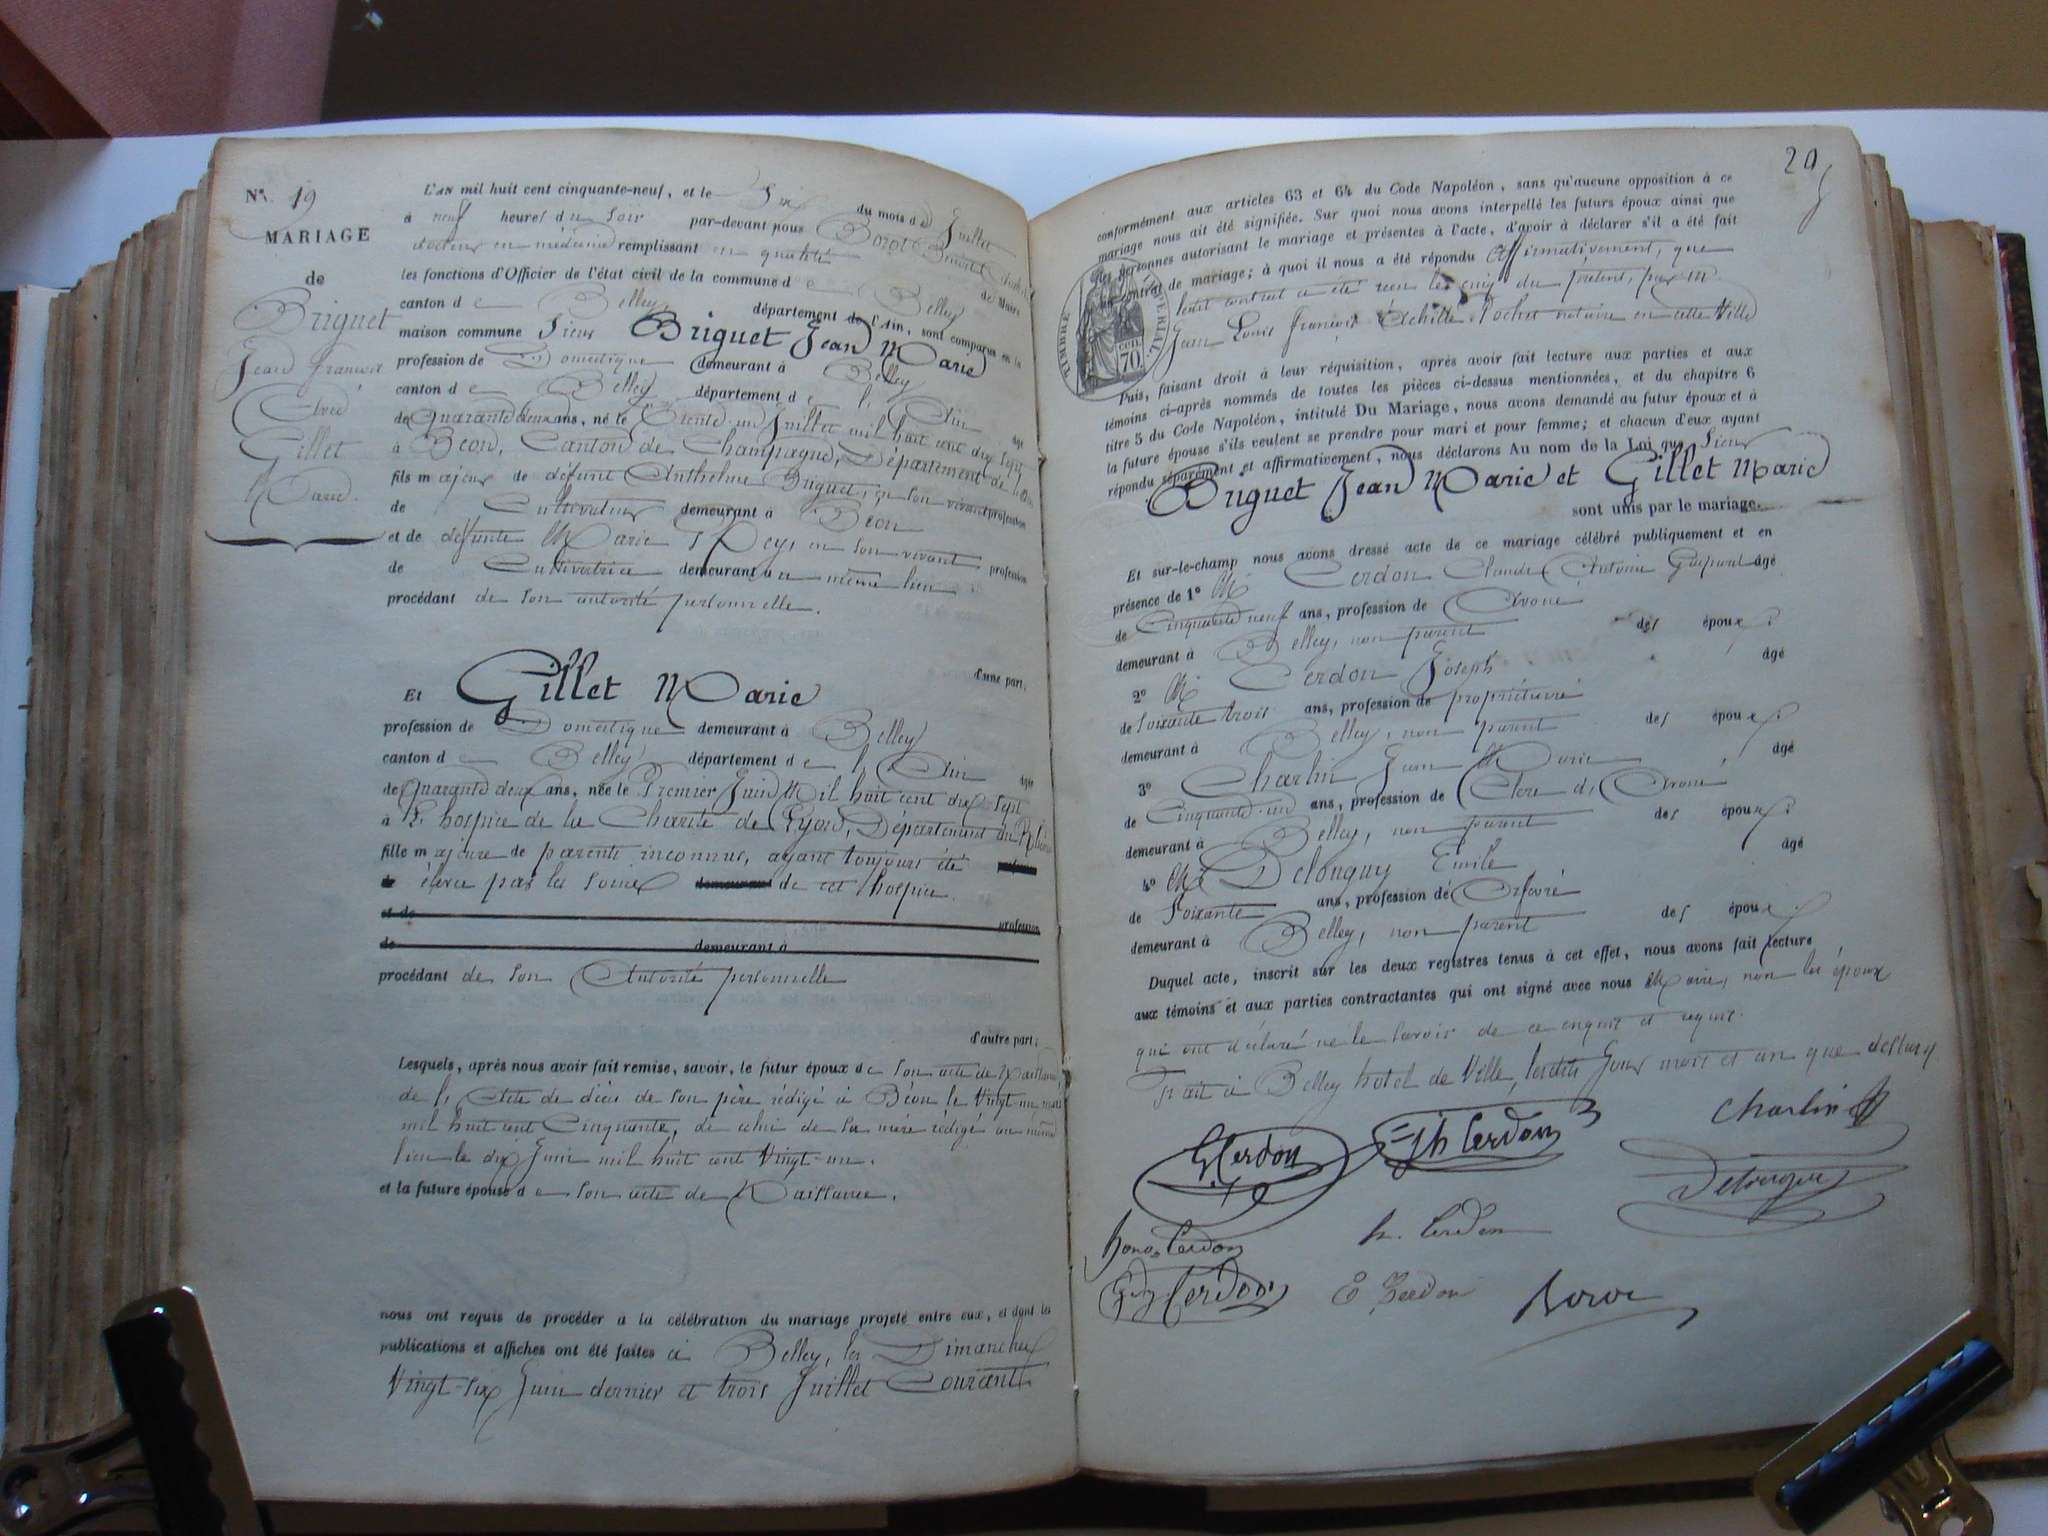 N°. 19
MARIAGE
de
Briguet
Jean François
Avec
Gillet
Marie.
L'AN mil huit cent cinquante-neuf, et le Six du mois de Juillet
à neuf heures du soir par-devant nous Borot Benoit
docteur en médecine remplissant en qualité de Maire
les fonctions d'Officier de l'état civil de la commune de Belley
canton de Belley département de l'Ain, sont comparus en la
maison commune Sieur Briguet Jean Marie
profession de Domestique demeurant à Belley
canton de Belley département de l'Ain âgé
de Quarante deux ans, né le Trente-un Juillet mil huit cent dix sept
à Béon, Canton de Champagne, Département de l'Ain
fils majeur de défunt Anthelme Briguet, en son vivant profession
de Cultivateur demeurant à Béon
et de défunte Marie Rey, en son vivant profession
de Cultivatrice demeurant au même lieu
procédant de son autorité personnelle.
d'une part;
Et Gillet Marie
profession de Domestique demeurant à Belley
canton de Belley département de l'Ain âgée
de Quarante deux ans, née le Premier Juin Mil huit cent dix sept
à L'hospice de la Charité de Lyon, Département du Rhône
fille majeure de parents inconnus, ayant toujours été
élevée par les soins de cet hospice.
et de profession
de demeurant à
procédant de son Autorité personnelle
d'autre part;
Lesquels, après nous avoir fait remise, savoir, le futur époux de son acte de Naissance
de l'Acte de décès de son père rédigé à Béon le Vingt-un mars
mil huit cent Cinquante, de celui de sa mère rédigé au même
lieu le dix Juin mil huit cent Vingt-un.
et la future épouse de son acte de Naissance.
nous ont requis de procéder a la célébration du mariage projeté entre eux, et dont les
publications et affiches ont été faites à Belley, les Dimanches
Vingt-six Juin dernier et trois Juillet Courant
29
conformément aux articles 63 et 64 du Code Napoléon, sans qu'aucune opposition à ce
mariage nous ait été signifiée. Sur quoi nous avons interpellé les futurs époux ainsi que
les personnes autorisant le mariage et présentes à l'acte, d'avoir à déclarer s'il a été fait
un contrat de mariage; à quoi il nous a été répondu Affirmativement, que
leur contrat a été reçu le cinq du présent, par M.
Jean Louis François Achille Rochet notaire en cette Ville
TIMBRE IMPERIAL.
CEN. 70
Puis, faisant droit à leur réquisition, après avoir fait lecture aux parties et aux
témoins ci-après nommés de toutes les pièces ci-dessus mentionnées, et du chapitre 6
titre 5 du Code Napoléon, intitulé Du Mariage, nous avons demandé au futur époux et à
la future épouse s'ils veulent se prendre pour mari et pour femme; et chacun d'eux ayant
répondu séparément et affirmativement, nous déclarons Au nom de la Loi que Sieur
Briguet Jean Marie et Gillet Marie
sont unis par le mariage.
Et sur-le-champ nous avons dressé acte de ce mariage célébré publiquement et en
présence de 1° M. Cerdon Claude Antoine Gaspard âgé
de Cinquante neuf ans, profession de Avoué
demeurant à Belley, non parent des époux
2° M. Cerdon Joseph âgé
de soixante trois ans, profession de propriétaire
demeurant à Belley, non parent des époux
3° Charlin Jean Marie âgé
de Cinquante-un ans, profession de Clerc d'Avoué
demeurant à Belley, non parent des époux
4° M. Delonguy Emile âgé
de Soixante ans, profession de Orfèvre
demeurant à Belley, non parent des époux
Duquel acte, inscrit sur les deux registres tenus à cet effet, nous avons fait lecture
aux témoins et aux parties contractantes qui ont signé avec nous Maire, non les époux
qui ont déclaré ne le savoir de ce enquis et requis.
Fait à Belley hôtel de Ville, lesdits Jour mois et an que dessus
G. Cerdon
Jh Cerdon
Charlin
Delonguy
h. Cerdon
Cerdon
Cerdon
E Cerdon
Borot